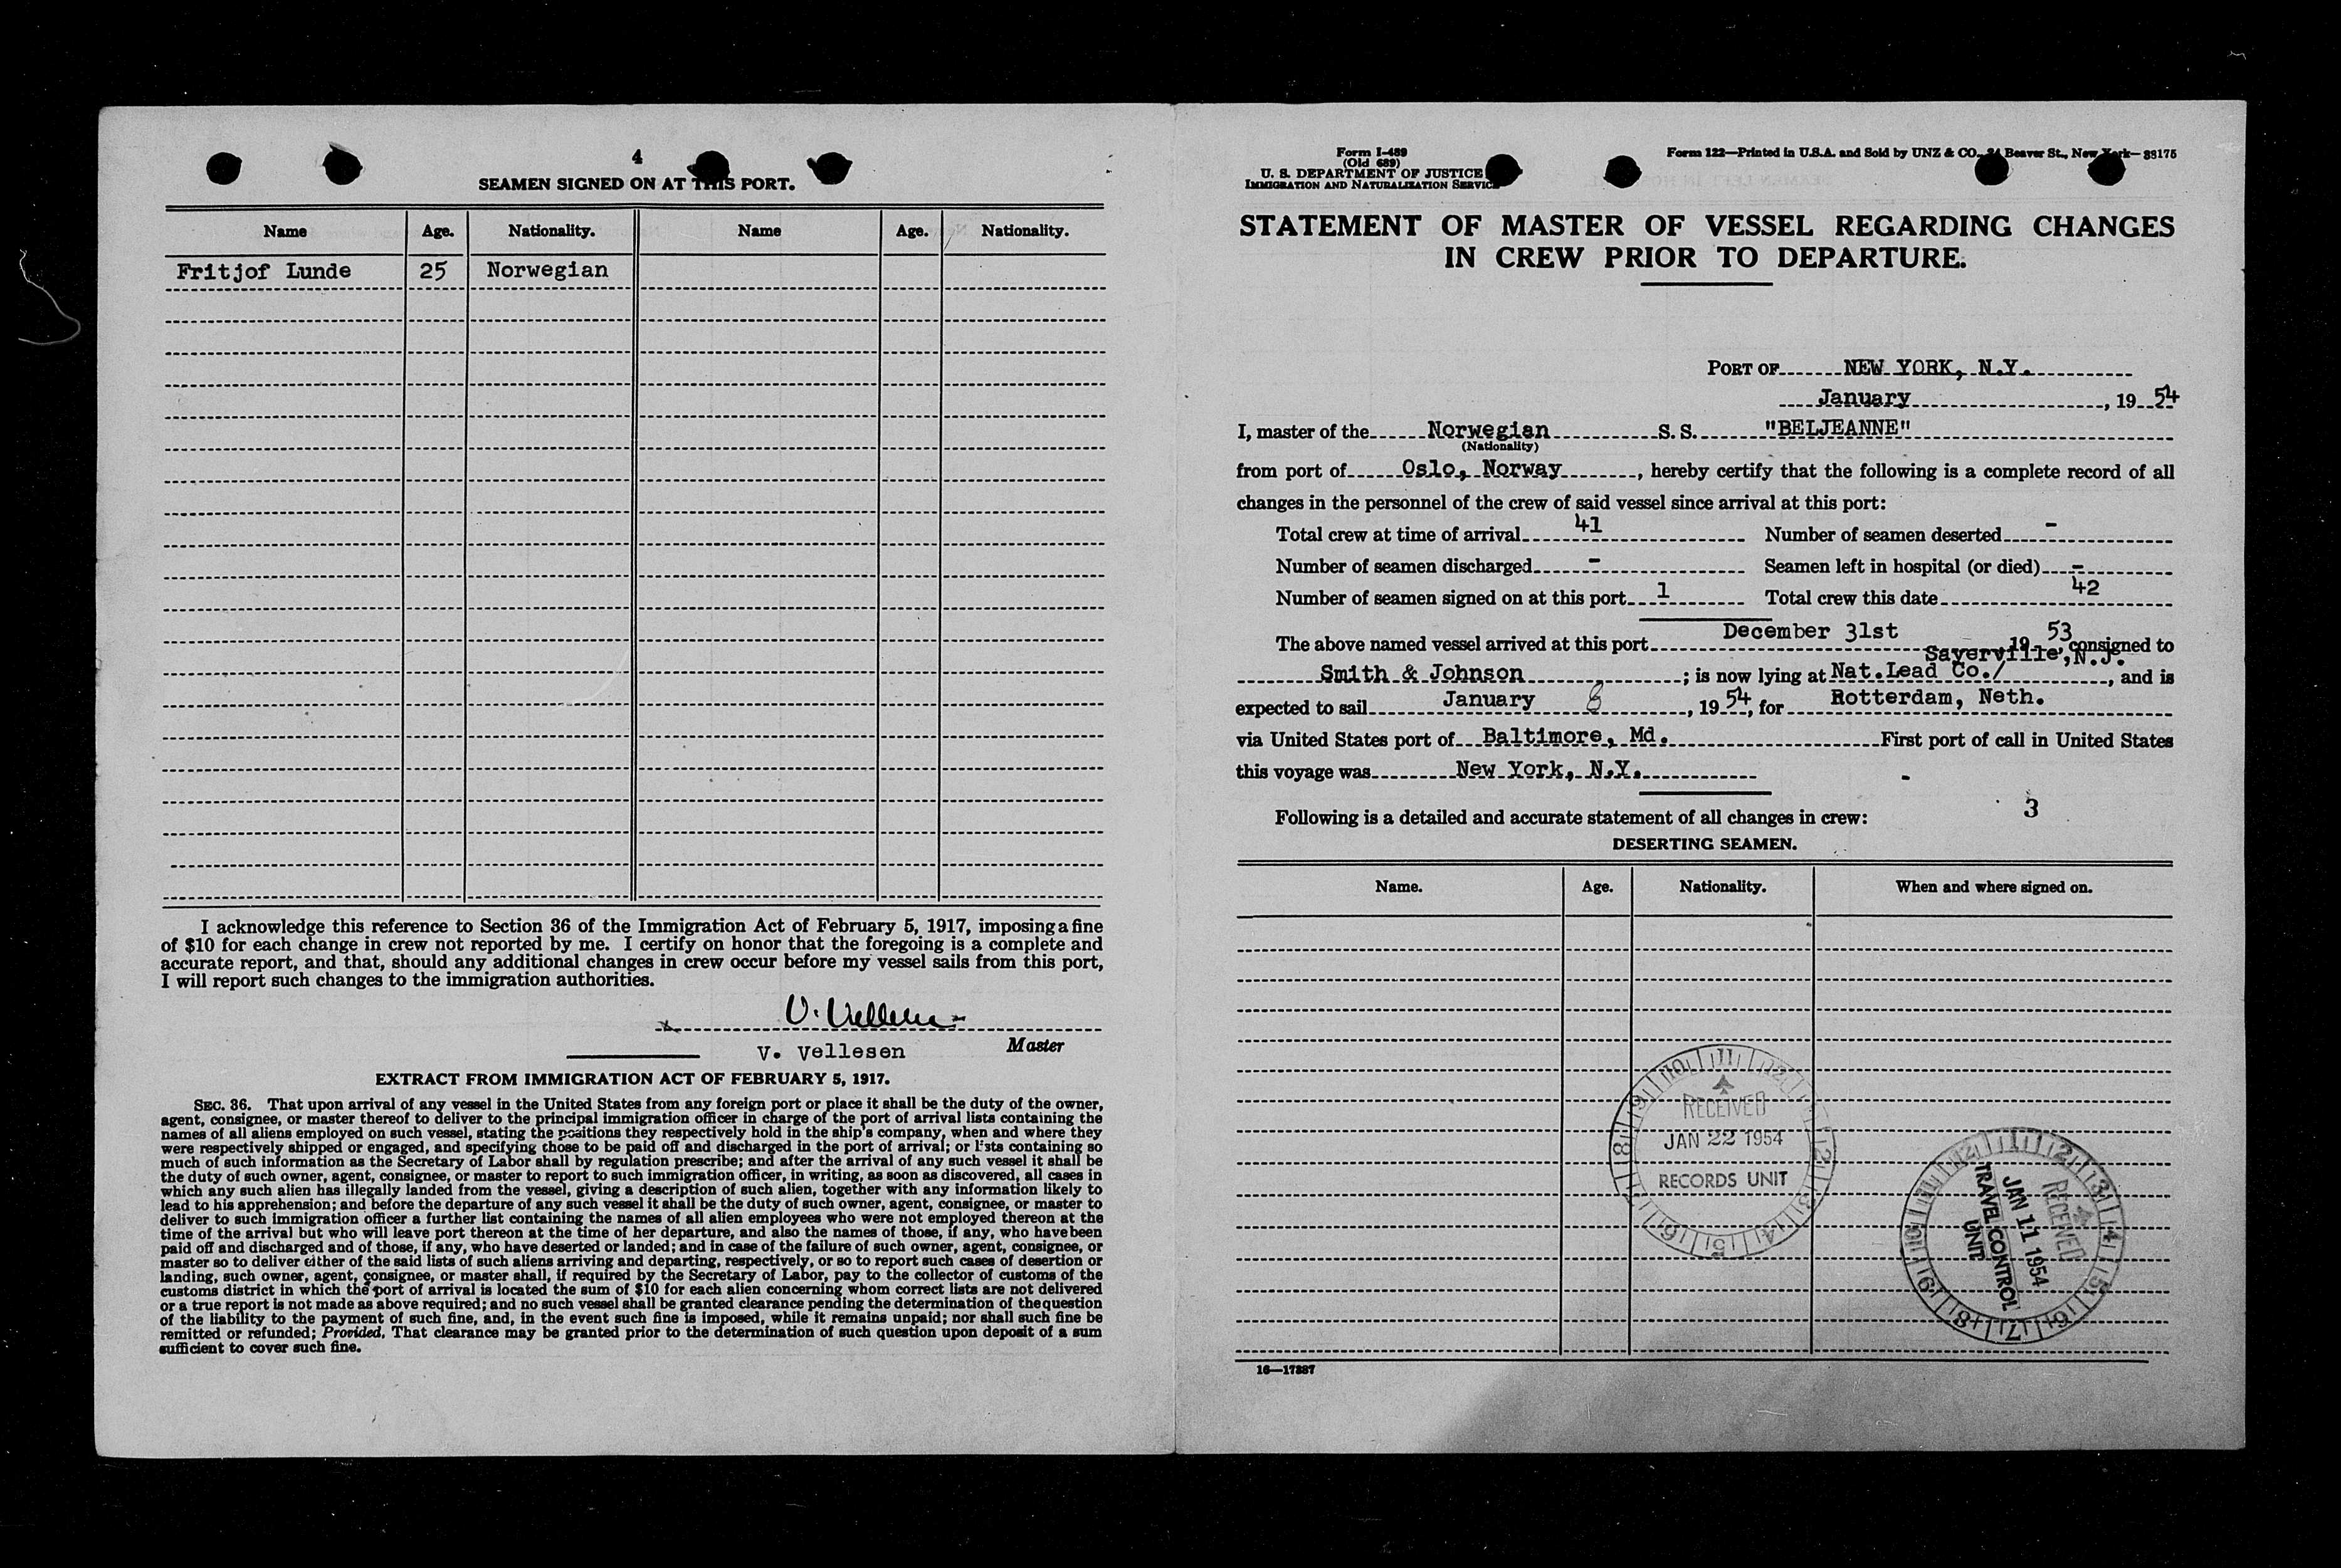 4
SEAMEN SIGNED ON AT THIS PORT.
Name Age. Nationality. Name Age. Nationality.
Fritjof Lunde 25 Norwegian
I acknowledge this reference to Section 36 of the Immigration Act of February 5, 1917, imposing a fine
of $10 for each change in crew not reported by me. I certify on honor that the foregoing is a complete and
accurate report, and that, should any additional changes in crew occur before my vessel sails from this port,
I will report such changes to the immigration authorities.
x V. Vellesen
V. Vellesen Master
EXTRACT FROM IMMIGRATION ACT OF FEBRUARY 5, 1917.
SEC. 36. That upon arrival of any vessel in the United States from any foreign port or place it shall be the duty of the owner,
agent, consignee, or master thereof to deliver to the principal immigration officer in charge of the port of arrival lists containing the
names of all aliens employed on such vessel, stating the positions they respectively hold in the ship's company, when and where they
were respectively shipped or engaged, and specifying those to be paid off and discharged in the port of arrival; or lists containing so
much of such information as the Secretary of Labor shall by regulation prescribe; and after the arrival of any such vessel it shall be
the duty of such owner, agent, consignee, or master to report to such immigration officer, in writing, as soon as discovered, all cases in
which any such alien has illegally landed from the vessel, giving a description of such alien, together with any information likely to
lead to his apprehension; and before the departure of any such vessel it shall be the duty of such owner, agent, consignee, or master to
deliver to such immigration officer a further list containing the names of all alien employees who were not employed thereon at the
time of the arrival but who will leave port thereon at the time of her departure, and also the names of those, if any, who have been
paid off and discharged and of those, if any, who have deserted or landed; and in case of the failure of such owner, agent, consignee, or
master so to deliver either of the said lists of such aliens arriving and departing, respectively, or so to report such cases of desertion or
landing, such owner, agent, consignee, or master shall, if required by the Secretary of Labor, pay to the collector of customs of the
customs district in which the port of arrival is located the sum of $10 for each alien concerning whom correct lists are not delivered
or a true report is not made as above required; and no such vessel shall be granted clearance pending the determination of the question
of the liability to the payment of such fine, and, in the event such fine is imposed, while it remains unpaid; nor shall such fine be
remitted or refunded; Provided, That clearance may be granted prior to the determination of such question upon deposit of a sum
sufficient to cover such fine.
Form I-489
(Old 689)
U. S. DEPARTMENT OF JUSTICE
IMMIGRATION AND NATURALIZATION SERVICE
Form 122—Printed in U.S.A. and Sold by UNZ & CO., 24 Beaver St., New York—38175
STATEMENT OF MASTER OF VESSEL REGARDING CHANGES
IN CREW PRIOR TO DEPARTURE.
PORT OF NEW YORK, N.Y.
January , 19 54
I, master of the Norwegian S. S. "BELJEANNE"
(Nationality)
from port of Oslo, Norway , hereby certify that the following is a complete record of all
changes in the personnel of the crew of said vessel since arrival at this port:
Total crew at time of arrival 41 Number of seamen deserted -
Number of seamen discharged - Seamen left in hospital (or died) -
Number of seamen signed on at this port 1 Total crew this date 42
The above named vessel arrived at this port December 31st 19 53, consigned to
Sayerville, N.J.
Smith & Johnson ; is now lying at Nat. Lead Co./ , and is
expected to sail January 8 , 19 54, for Rotterdam, Neth.
via United States port of Baltimore, Md. First port of call in United States
this voyage was New York, N.Y. -
3
Following is a detailed and accurate statement of all changes in crew:
DESERTING SEAMEN.
Name. Age. Nationality. When and where signed on.
RECEIVED
JAN 22 1954
RECORDS UNIT
RECEIVED
JAN 11 1954
TRAVEL CONTROL
UNIT
16—17387